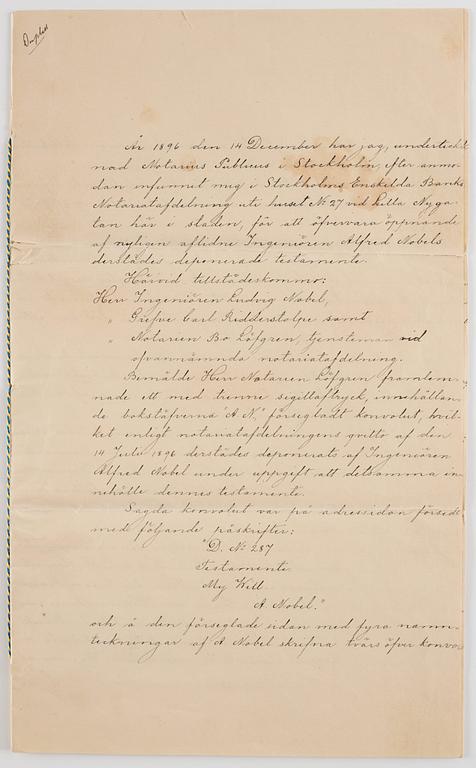 Duplett
År 1896 den 14 December har jag, underteck
nad Notarius Publicus i Stockholm, efter anmo-
dan infunnit mig i Stockholms Enskilda Banks
Notariatafdelning uti huset No 27 vid Lilla Nyga-
tan här i staden, för att öfvervara öppnande
af nyligen aflidne Ingeniören Alfred Nobels
derstädes deponerade testamente.
Härvid tillstädeskommo:
Herr Ingeniören Ludvig Nobel,
" Grefve Carl Ridderstolpe samt
" Notarien Bo Löfgren, tjensteman vid
ofvannämnda notariatafdelning.
Bemälde Herr Notarien Löfgren framlem-
nade ett med trenne sigillaftryck, innehållan-
de bokstäfverna "A. N.", förseglat konvolut, hvil-
ket enligt notariatafdelningens qvitto af den
14 Juli 1896 derstädes deponerats af Ingeniören
Alfred Nobel under uppgift att detsamma in-
nehölle dennes testamente.
Sagda konvolut var på adressidan försedt
med följande påskrifter:
"D. No 287
Testamente
My Will
A. Nobel."
och å den förseglade sidan med fyra namn-
teckningar af A Nobel skrifna tvärs öfver konvo